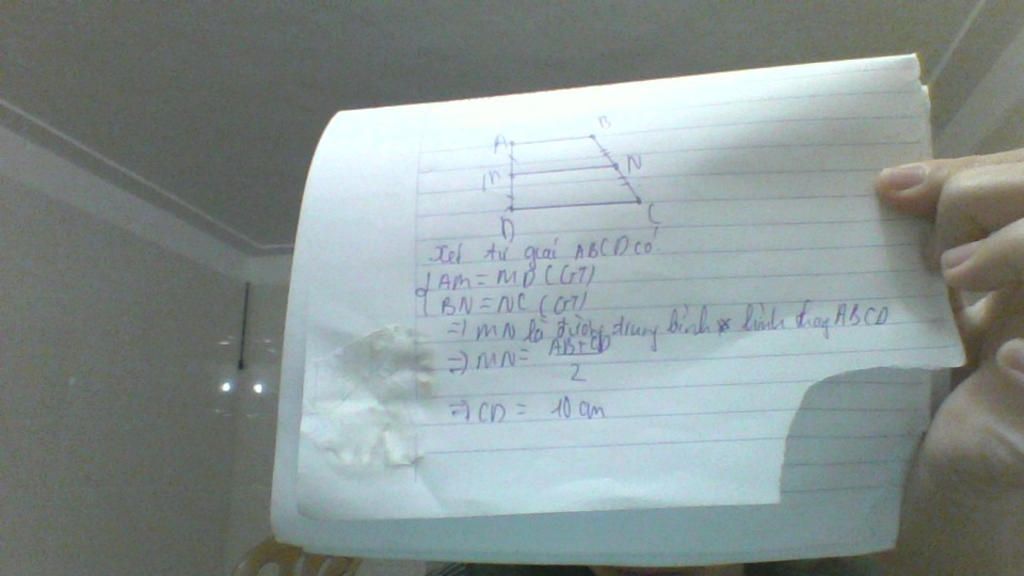 A B
M N
D C
Xét tứ giác ABCD có
AM = MD (GT)
BN = NC (GT)
=> MN là đường trung bình hình thang ABCD
=> MN = AB+CD
2
=> CD = 10 cm